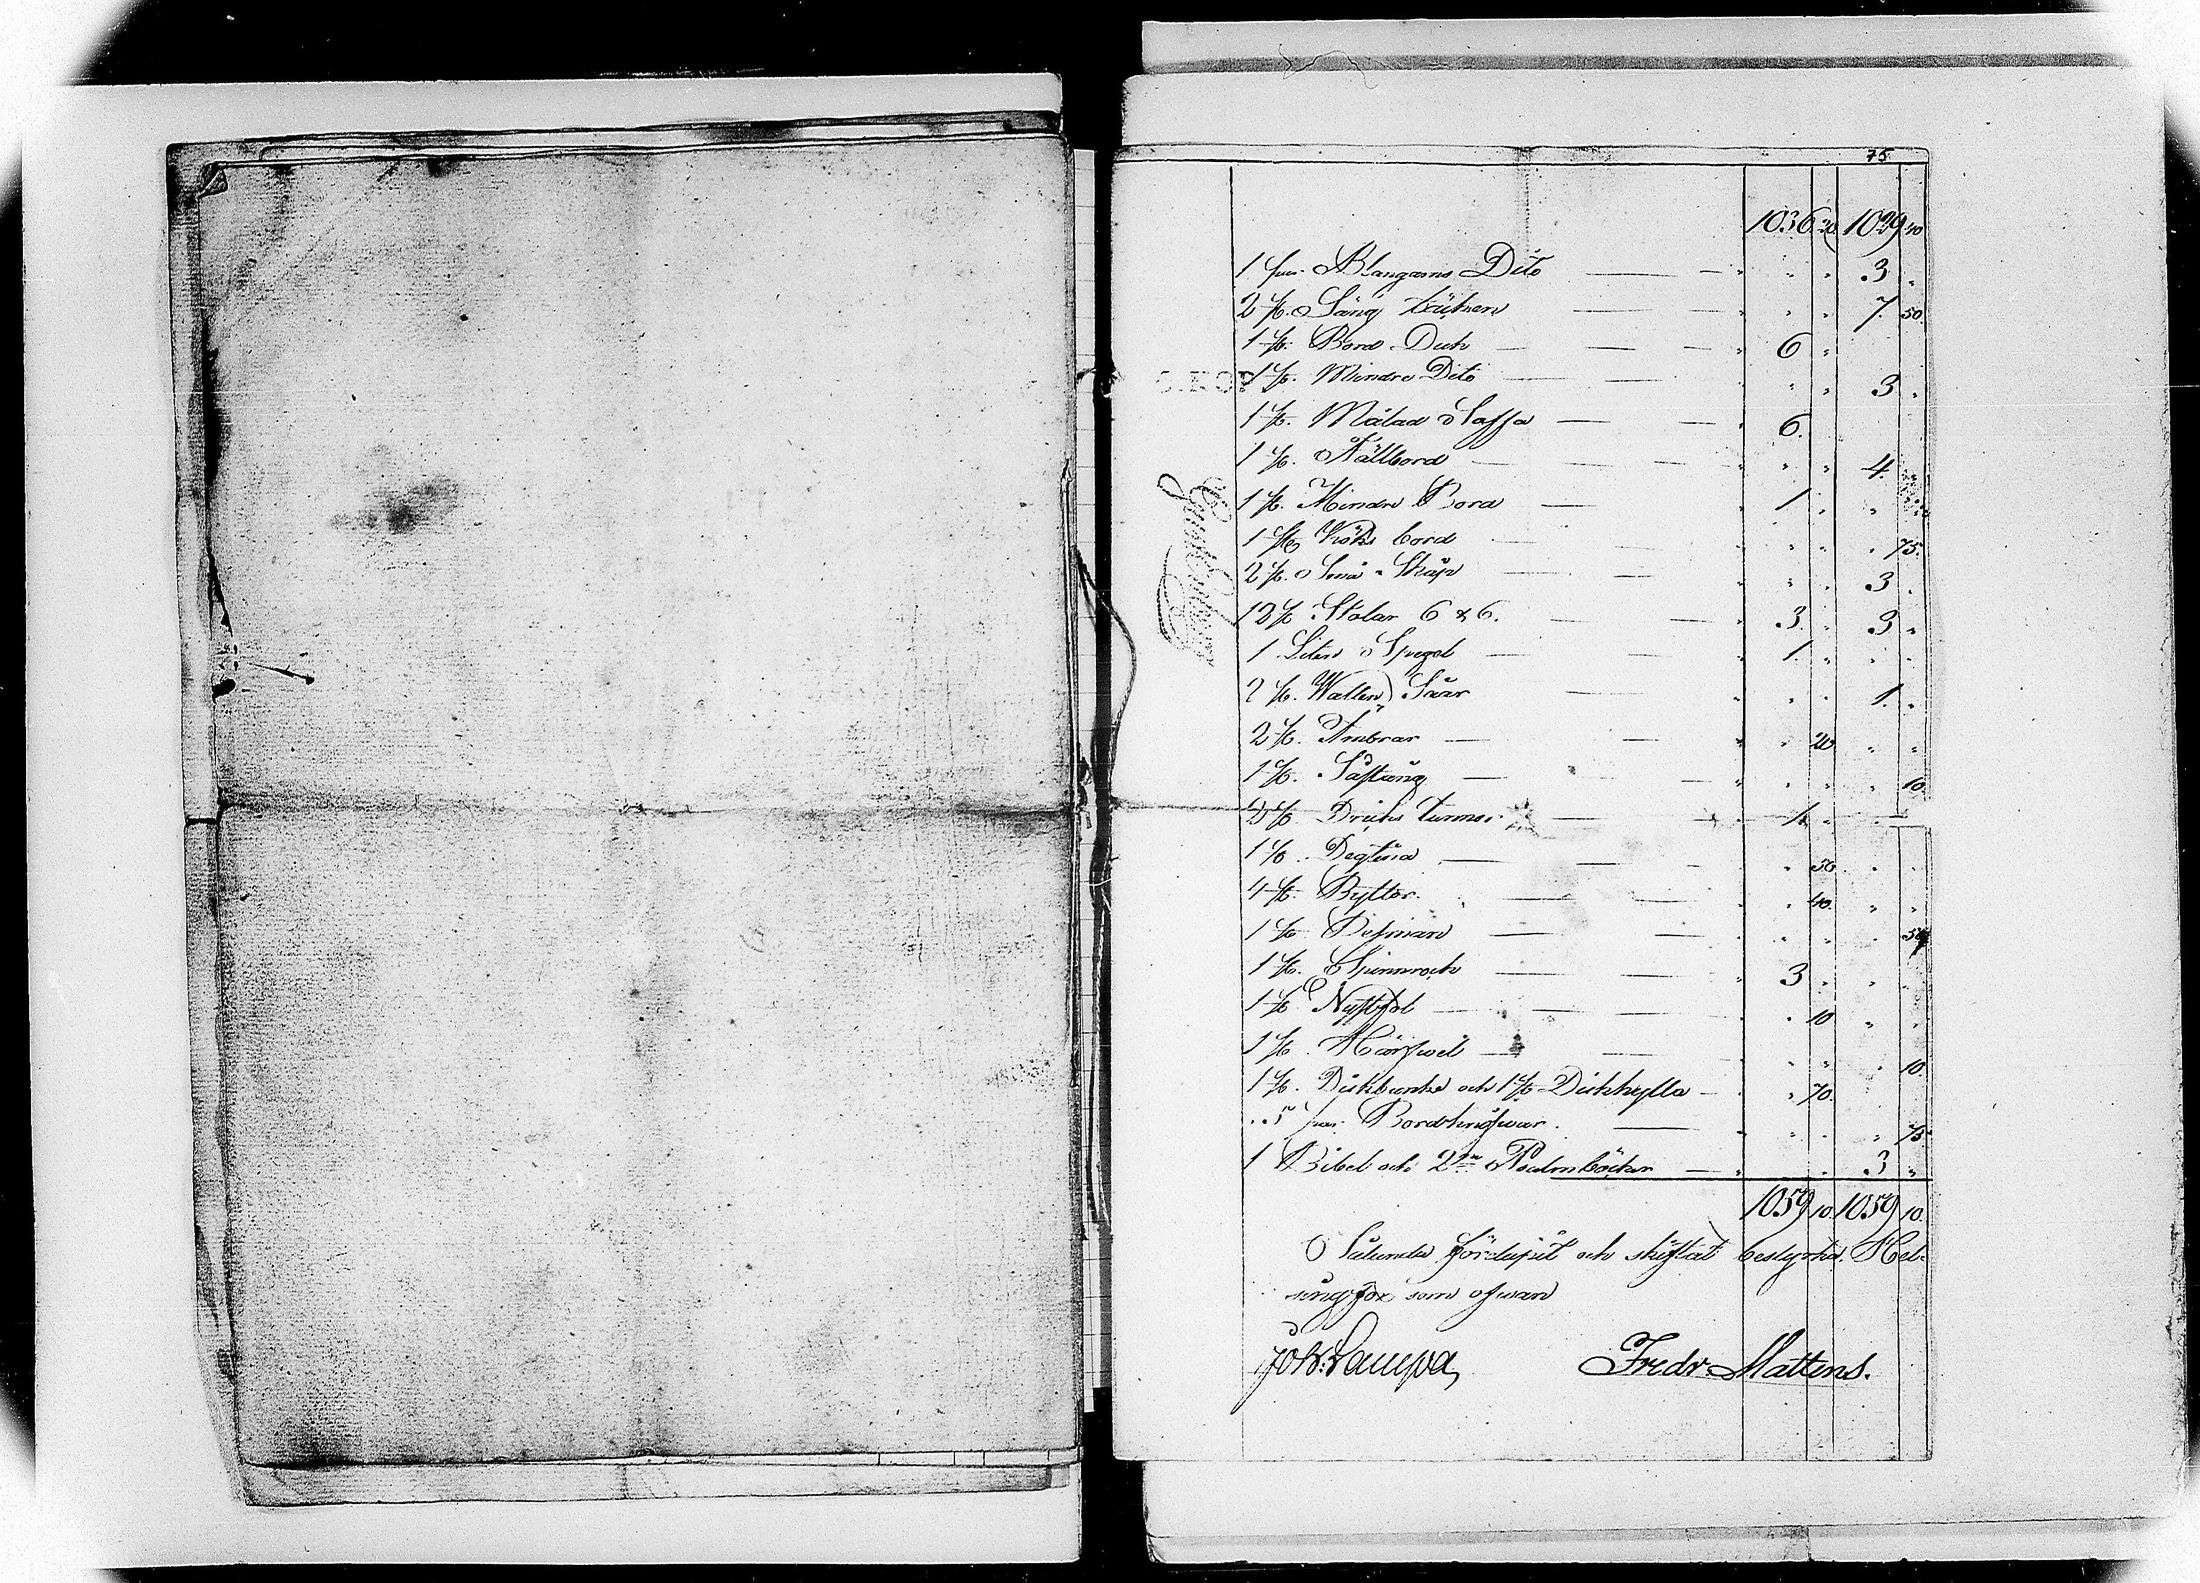 75
1036 20 1029 40
1 par. Blangarns Dito 3
2 st. Säng täcken 7 50
1 st. Bord Duk 6
1 st. Mindre Dito 3
1 st. Målad Saffa 6
1 st. Fällbord 4
1 st. Mindre Bord 1
1 st. Köks bord 75
2 st. Små Skåp 3
12 st Stolar 6 & 6. 3 3
1 Liten Spegel 1
2 st. Watten Såar 1
2 st. Ämbrar 20
1 st. Såstång 10
2 st Dricks tunnor 1
1 st. Degtina 50
4 st. Byttor. 40
1 st Besman 50
1 st. Spinnrock 3
1 st Nystfot 10
1 st. 10
1 st. Diskbunke och 1 st Diskhylla 70
5 par. Bordsknifwar. 75
1 Bibel och 2ne Psalmböcker 3
1059 10 1059 10
Sålunda fördelat och skiftat bestyrka. Hel-
singfors som ofwan
Joh: Lampa, Fredr Mattens.